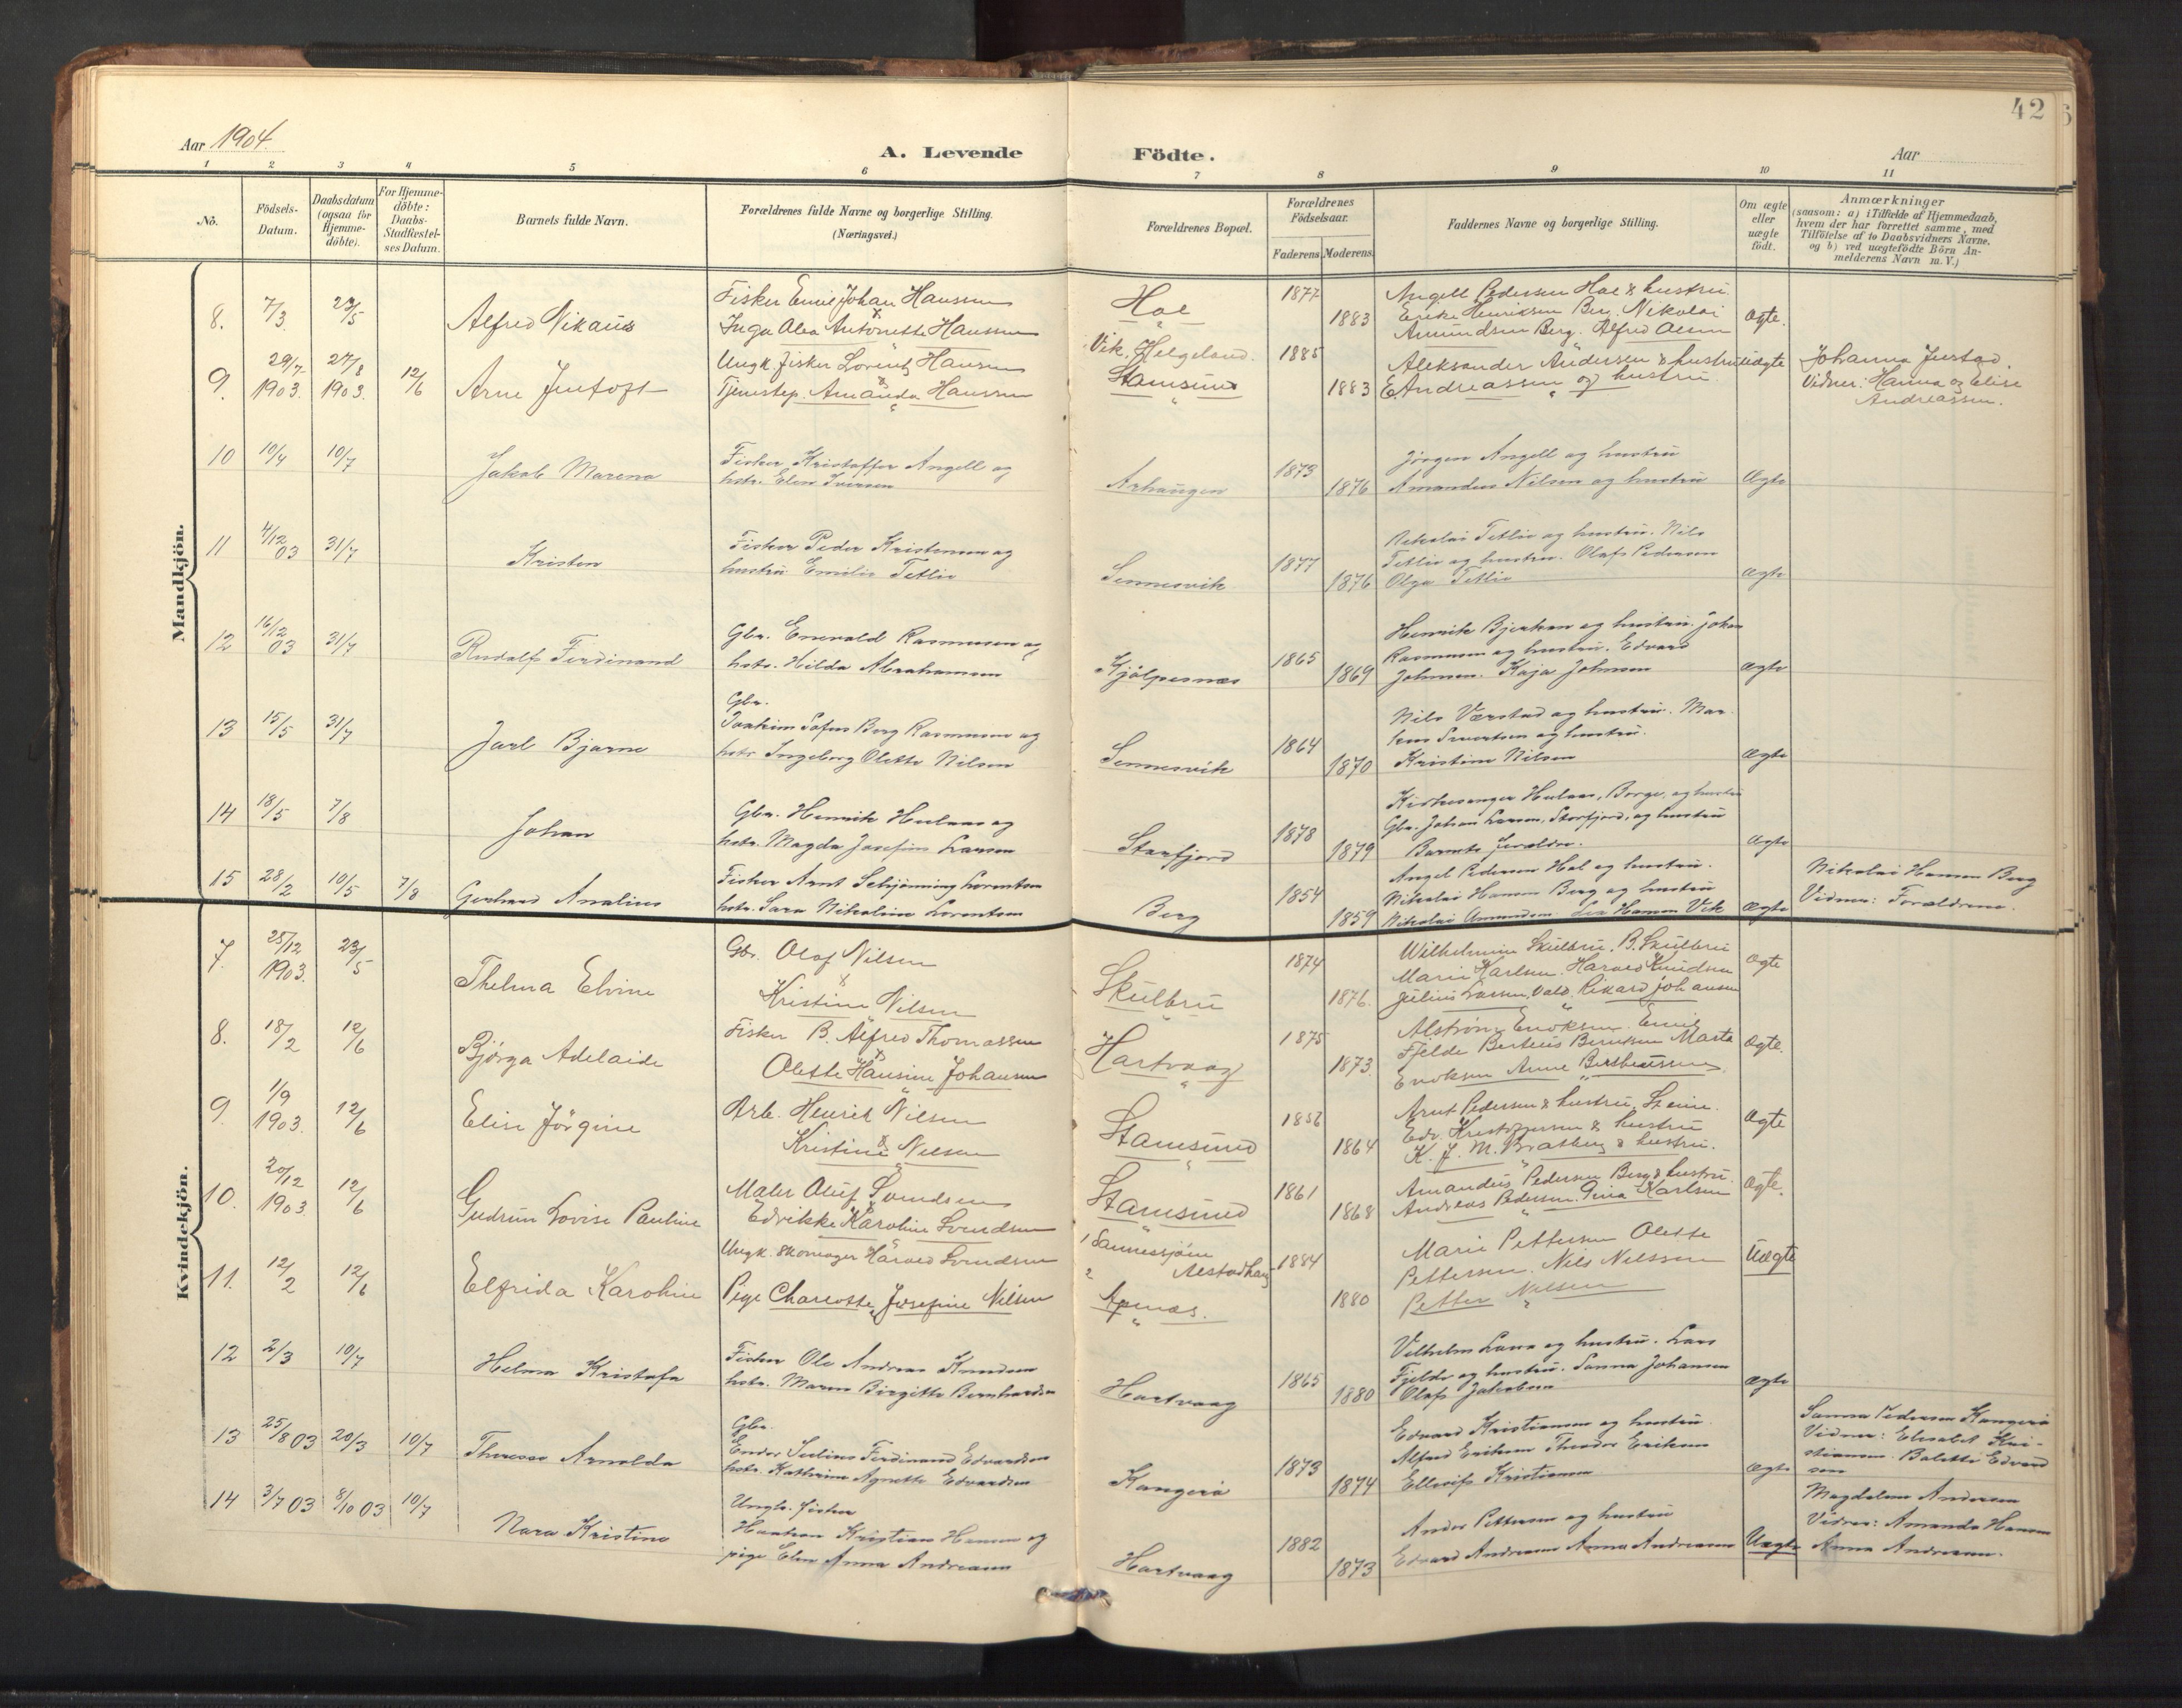 42
Aar 1904.
A. Levende Födte.
Aar
1 2 3 4 5 6 7 8 9 10 11
No.
Födsels-Datum.
Daabsdatum (ogsaa för Hjemme-döbte).
For Hjemme-döbte: Daabs-Stadfæstel-ses Datum.
Barnets fulde Navn.
Forældrenes fulde Navne og borgerlige Stilling.
(Næringsvei.)
Forældrenes Bopæl.
Forældrenes Födselsaar.
Faderens Moderens
Faddernes Navne og borgerlige Stilling.
Om ægte eller uægte födt.
Anmærkninger
(saasom: a) i Tilfælde af Hjemmedaab, hvem der har forrettet samme, med Tilföielse af to Daabsvidners Navne, og b) ved uægtefödte Börn An-melderens Navn m. V.)
Mandkjön.
8. 7/3 Alfred Nikaus
Fisker Emil Johan Hanssen
Inga Olea Antonette Hanssen
Hol
1877 1883
Angell Pedersen Hol & hustru.
Erike Henriksen Berg. Nikolai
Amundsen Berg. Alfred Olsen
Ægte.
9. 29/7 1903. 27/8 1903. 12/6 Arne Jentoft
Ungk. fisker Lorentz Hansen
Tjenestep. Amanda Hanssen
Vik, Helgeland.
Stamsund
1885 1883
Aleksander Andersen & hustru
E. Andreassen og hustru
uægte
Johanna Justad
Vidner: Hanna og Elise
Andreassen.
10 10/4 10/7 Jakob Mareno
Fisker Kristoffer Angell og
hstr. Elen Iversen
Arhaugen
1873 1876
Jörgen Angell og hustru
Amandus Nilsen og hustru
Ægte
11 4/12 03 31/7 Kristen
Fisker Peder Kristensen og
hustru Emilie Tetlie
Sennesvik
1877 1876
Nikolai Tetlie og hustru. Nils
Tetlie og hustru. Olaf Pedersen
Olga Tetlie
Ægte
12 16/12 03 31/7 Rudolf Ferdinand
Gbr. Enevold Rasmussen og
hstr. Hilda Abrahamsen
Kjölpesnæs
1865 1869
Henrik og hustru. Johan
Rasmussen og hustru. Edvard
Johnsen. Kaja Johnsen
ægte
13 15/5 31/7 Jarl Bjarne
Gbr.
Joakim Sofus Berg Rasmussen og
hstr Ingeborg Olette Nilsen
Sennesvik
1864 1870
Nils Værstad og hustru. Mar-
og hustru.
Kristine Nilsen
Ægte
14 18/5 7/8 Johan
Gbr. Henrik Hulaas og
hstr. Magda Josefine Larsen
Storfjord
1878 1879
Kirkesanger Hulaas, Borge, og hustru
Gbr. Johan Larsen, Storfjord, og hustru
Barnets forældre.
Ægte
15 28/2 10/5 7/8 Gerhard Analius
Fisker Arnt Schjönning Lorentsen
hstr. Sara Nikoline Lorentsen
Berg
1854 1859
Angel Pedersen Hol og hustru.
Nikolai Hansen Berg og hustru
Nikolai Amundsen Hansen Vik
ægte
Nikolai Hansen Berg
Vidner: Forældrene.
Kvindekjön.
7. 25/12 1903. 23/5 Thelma Elvine
Gbr. Olaf Nilsen
Kristine Nilsen
Skulbru
1874 1876.
Wilhelmine Skulbru, B. Skulbru
Marie Karlsen. Harald Knudsen
Julius Larsen, Vold. Rikard Johansen
Ægte
8. 18/2 12/6 Bjørga Adelaide
Fisker B. Alfred Thomassen
Olette Hansine Johansen
Hartvaag
1875 1873.
Enoksen. Emil
Fjelde Berteus Berntsen Marta
Enoksen Anne Bertheussen
Ægte.
9. 1/9 1903. 12/6 Elise Jörgine
Arb. Henrik Nilsen
Kristine Nilsen
Stamsund
1864
Arnt Pedersen & hustru, Steine.
Edv. Kristoffersen & hustru
K. J. M. Bratberg & hustru.
Ægte
10. 20/12 1903. 12/6 Gudrun Lovise Pauline
Maler Oluf Svendsen
Edvikke Karoline Svendsen
Stamsund
1861 1868
Amandus Pedersen Berg & hustru
Andreas Pedersen. Gina Karlsen
Ægte.
11. 12/2 12/6 Elfrida Karoline
Ungk. Skomager Harald Svendsen
Pige Charlotte Josefine Nilsen
Sannessjöen
Alstadhaug
1884 1880
Marie Pettersen Olette
Pettersen. Nils Nilssen
Petter Nilsen
Uægte
12 2/3 10/7 Helma Kristofa
Fisker Ole Andreas Knudsen
hstr. Maren Birgitte Bernhardsen
Hartvaag
1865 1880
Vilhelm Larsen og hustru. Lars
Fjelde og hustru. Sanna Johansen
Olaf Jakobsen
ægte
13 25/8 03 20/3 10/7 Theresse Arnolda
Gbr.
Endor Ferdinand Edvardsen
hstr. Kathrine Agnette Edvardsen
Kangerö
1873 1874
Edvard Kristiansen og hustru
Alfred Eriksen Theodor Eriksen
Kristiansen
ægte
Sanna Pedersen Kangerö
Vidner: Elisabet Kri-
stiansen. Bolette Edvard
sen
14 3/7 03 8/10 03 10/7 Nora Kristine
Ungk. fisker
Kristian Hansen og
pige Elen Anna Andreassen
Hartvaag
1882 1873
Andor Pettersen og hustru
Edvard Andreassen Anna Andreassen
Uægte
Magdalena Andersen
Vidner: Amanda Hansen
Anna Andreassen.